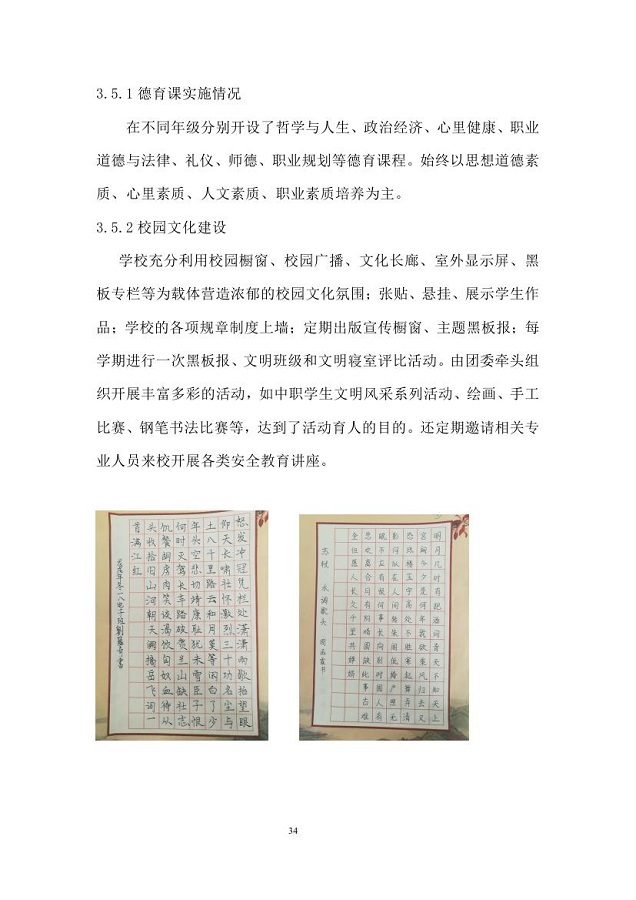 3.5.1德育课实施情况
在不同年级分别开设了哲学与人生、政治经济、心里健康、职业
道德与法律、礼仪、师德、职业规划等德育课程。始终以思想道德素
质、心里素质、人文素质、职业素质培养为主。
3.5.2校园文化建设
学校充分利用校园橱窗、校园广播、文化长廊、室外显示屏、黑
板专栏等为载体营造浓郁的校园文化氛围；张贴、悬挂、展示学生作
品；学校的各项规章制度上墙；定期出版宣传橱窗、主题黑板报；每
学期进行一次黑板报、文明班级和文明寝室评比活动。由团委牵头组
织开展丰富多彩的活动，如中职学生文明风采系列活动、绘画、手工
比赛、钢笔书法比赛等，达到了活动育人的目的。还定期邀请相关专
业人员来校开展各类安全教育讲座。
怒发冲冠凭栏处潇潇雨歇抬望眼
仰天长啸壮怀激烈三十功名尘与
土八千里路云和月莫等闲白了少
年头空悲切靖康耻犹未雪臣子恨
何时灭驾长车踏破贺兰山缺壮志
饥餐胡虏肉笑谈渴饮匈奴血待从
头收拾旧山河朝天阙摘岳飞词一
首满江红
明月几时有把酒问青天不知天上
宫阙今夕是何年我欲乘风归去又
恐琼楼玉宇高处不胜寒起舞弄清
影何似在人间转朱阁低绮户照无
眠不应有恨何事长向别时圆人有
悲欢离合月有阴晴圆缺此事古难
全但愿人长久千里共婵娟
苏轼 水调歌头
34